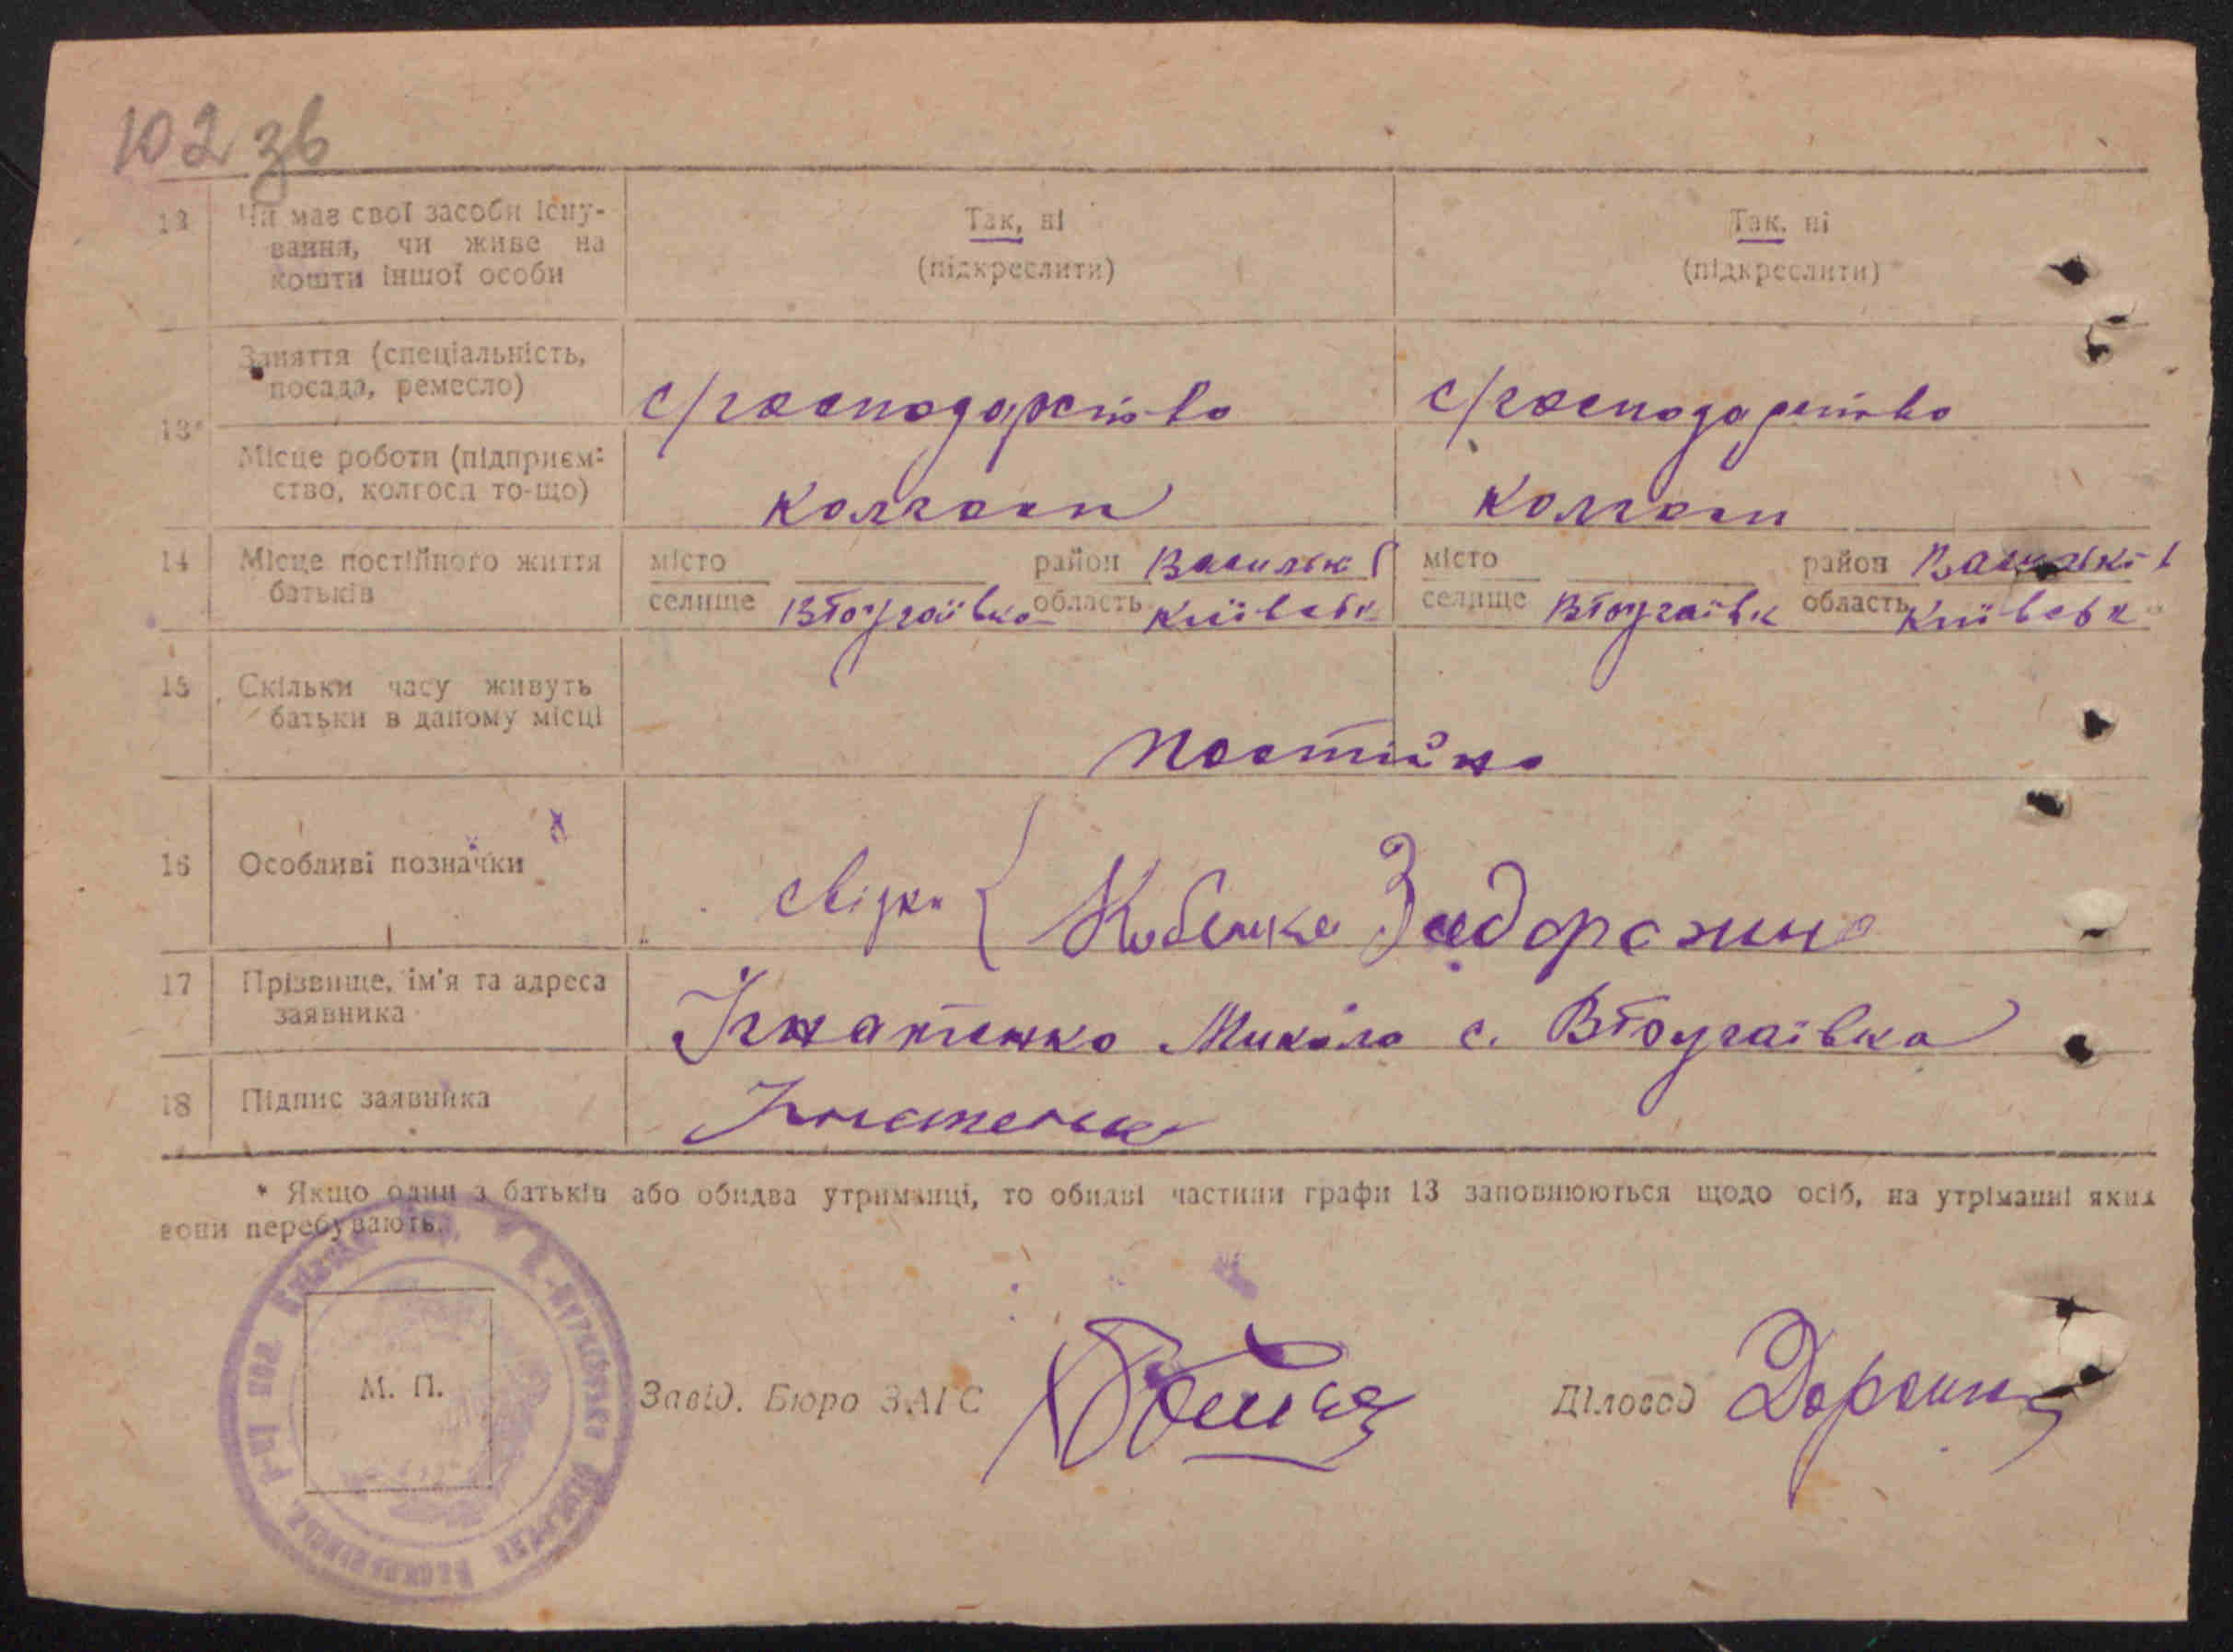 102 зв
13 Чи має свої засоби існу-
вання, чи живе на
кошти іншої особи
Так, ні
(підкреслити)
Так, ні
(підкреслити)
13*
Заняття (спеціальність,
посада, ремесло)
с/господарство
с/господарство
Місце роботи (підприєм-
ство, колгосп то-що)
колгосп
колгосп
14 Місце постійного життя
батьків
місто
селище Втоугаївка
район Васильк
область Київськ
місто
селище Втоугаївк
район Васильків
область Київськ
15 Скільки часу живуть
батьки в даному місці
постійно
16 Особливі позначки
свідки Задорожна
17 Прізвище, ім'я та адреса
заявника
Ігнатенко Микола с. Втоугаївка
18 Підпис заявника
Ігнатенко
* Якщо один з батьків або обидва утриманці, то обидві частини графи 13 заповнюються щодо осіб, на утріманні яких
вони перебувають.
М. П.
Завід. Бюро ЗАГС
Діловод